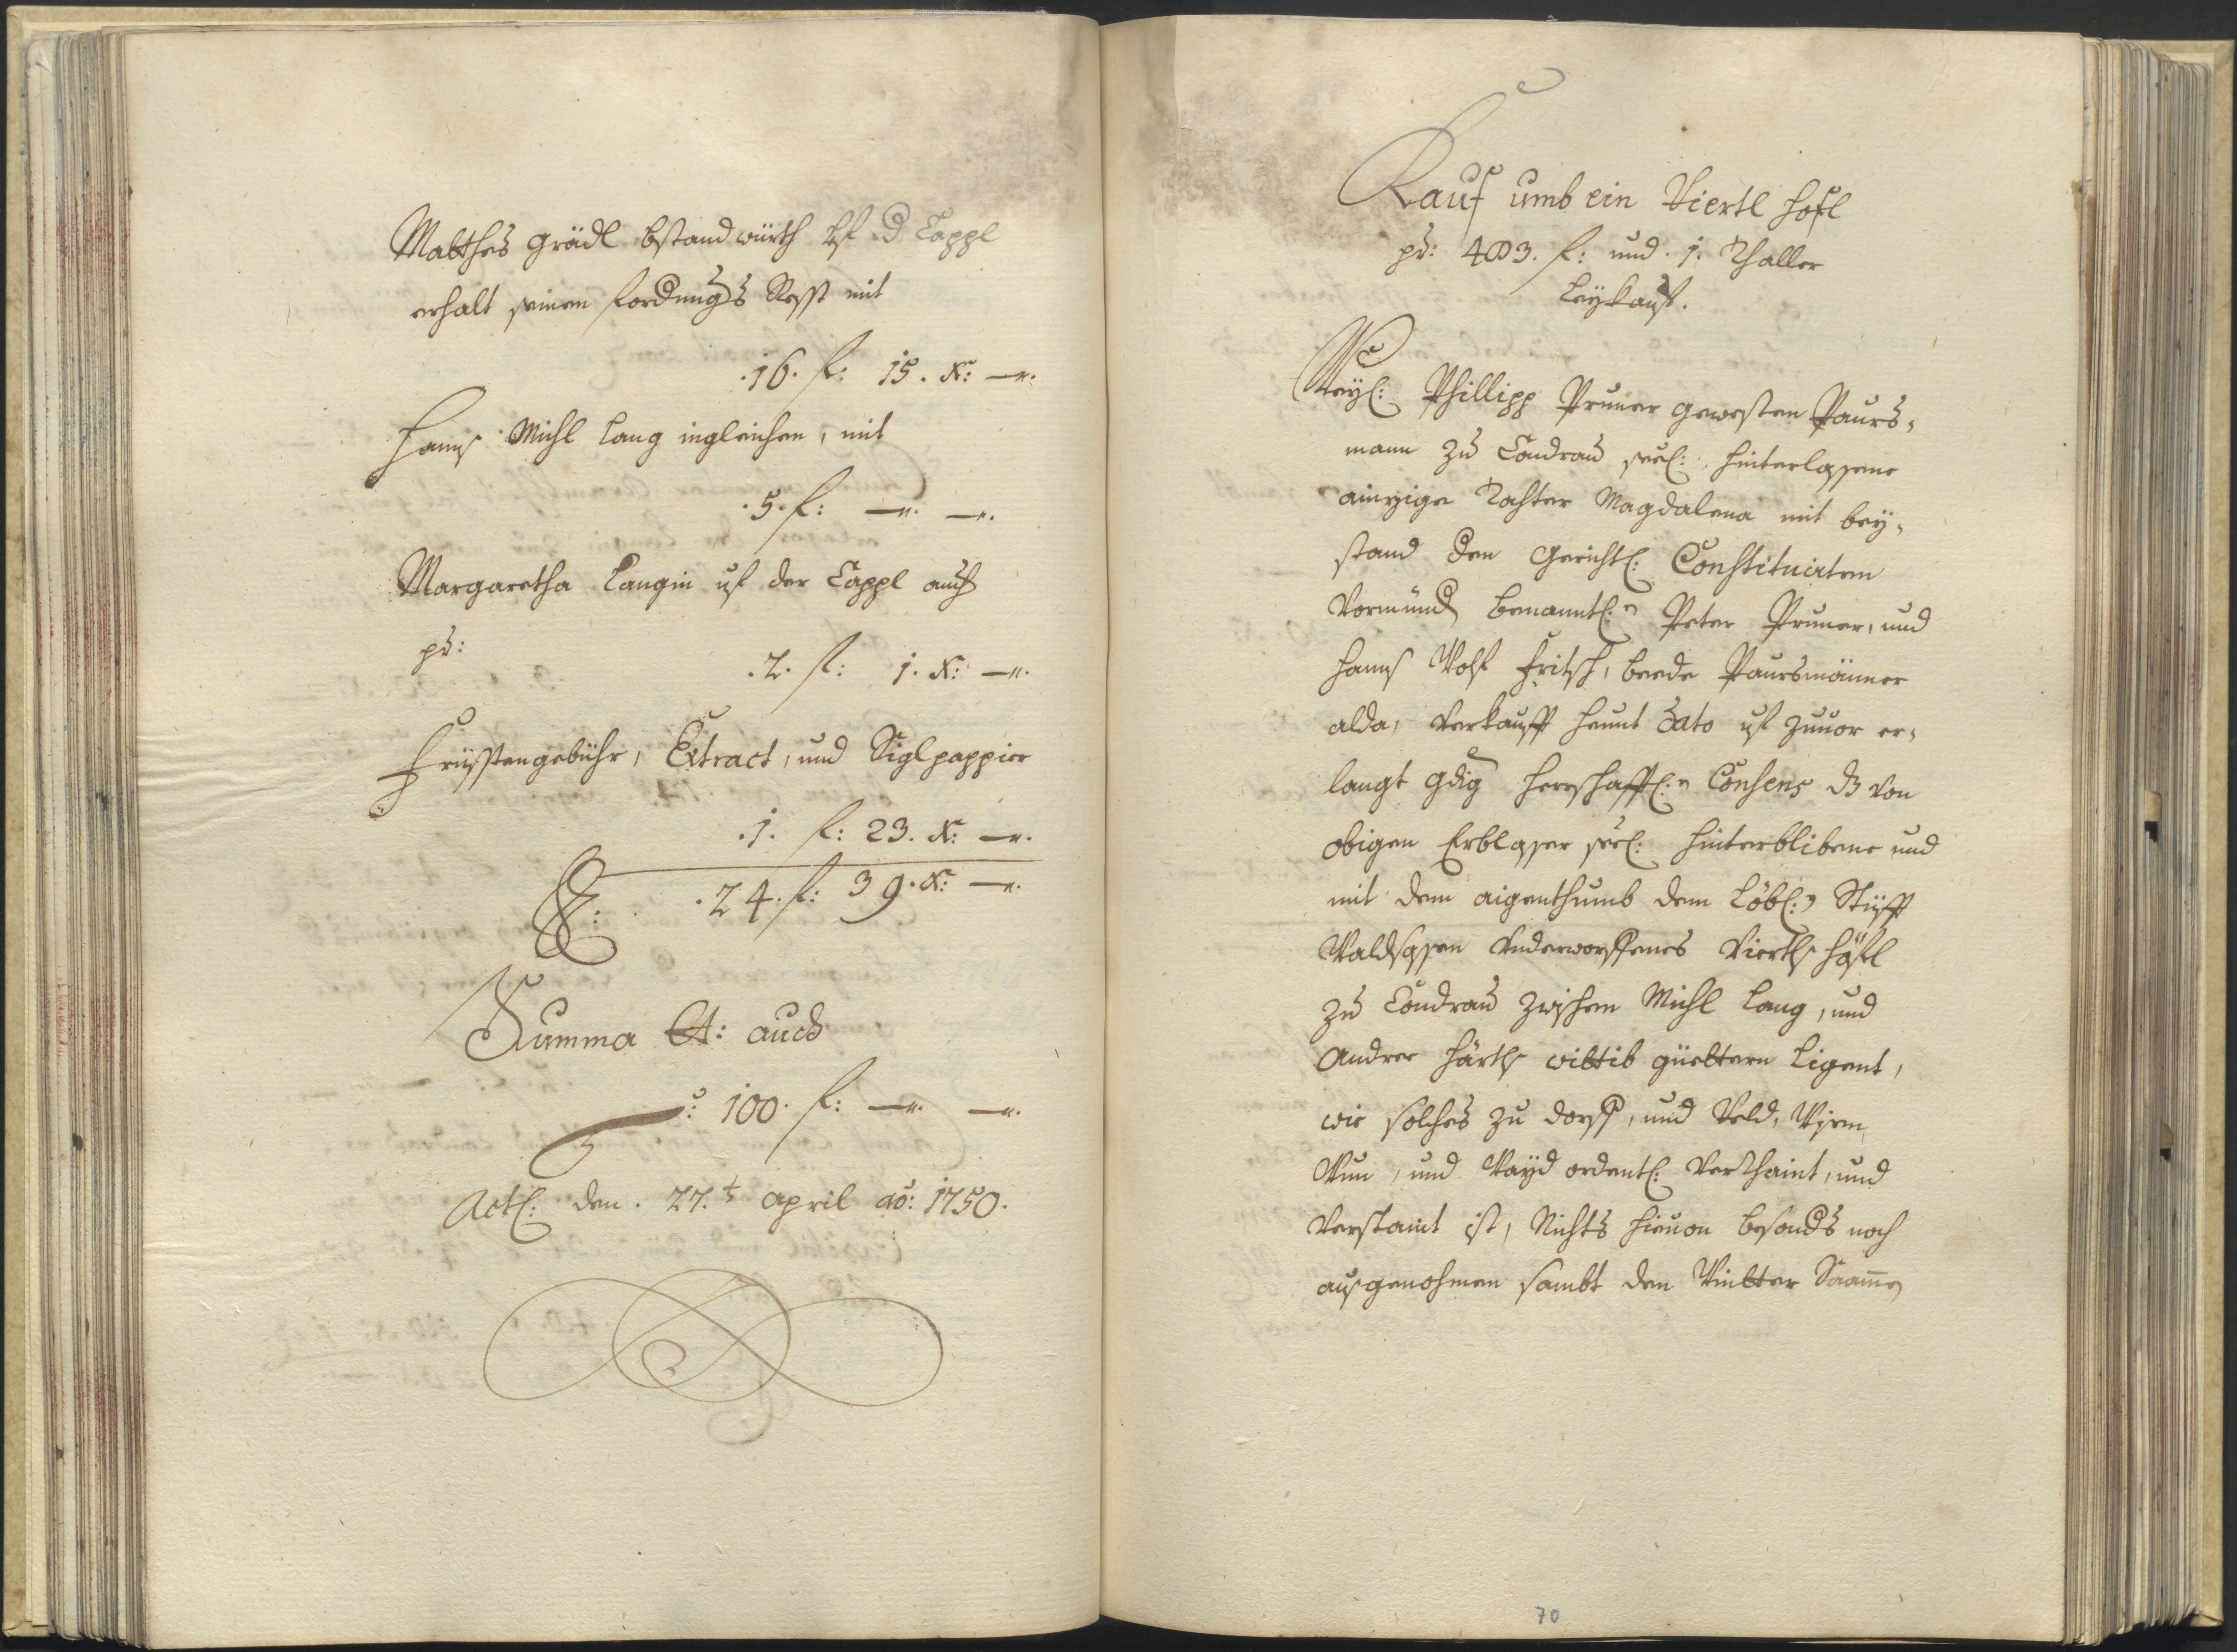 Matthes Grädl bstandwürth uf d Cappl
erhalt seinen fordungs Resst mit
.16. f: 15. x: —.
Hanns Michl Lang ingleichen, mit
.5. f: —. —.
Margaretha Langin uf der Cappl auch
pr:
.2. f: 1. x: —.
Früsstengebühr, Extract, und Siglpappier
.1. f: 23. x: —.
S: .24. f: 39. x: —.
Summa A: auch
: 100. f: —. —.
Actl: den. 27.t april ao: 1750.
Kauf umb ein Viertl höfl
pr: 403. f: und. 1. Thaller
Leykauf.
Weyl: Phillipp Pruner gewesten Paurs-
mann zu Condrau seel: hinterlassene
ainzige Tochter Magdalena mit bey-
stand den Gerichtl: Constituirten
Vormünd benanntl: Peter Pruner, und
Hanns Wolf Fritsch, beede Paursmänner
alda, verkaufft heunt dato uf zuuor er-
langt gdig herrschafftl: Consens dz von
obigen Erblasser seel: hinterblibene und
mit dem aigenthumb dem Löbl: Stüfft
Waldsassen underworffenes Viertl höfl
zu Condrau zwischen Michl Lang, und
Andree Härtl wittib güettern ligent,
wie solches zu dorff, und Veld, Wisen
Wun, und Wayd ordentl: verrhaint, und
verstaint ist, Nichts hieuon besonds noch
ausgenohmen sambt den Wintter Saamen
70